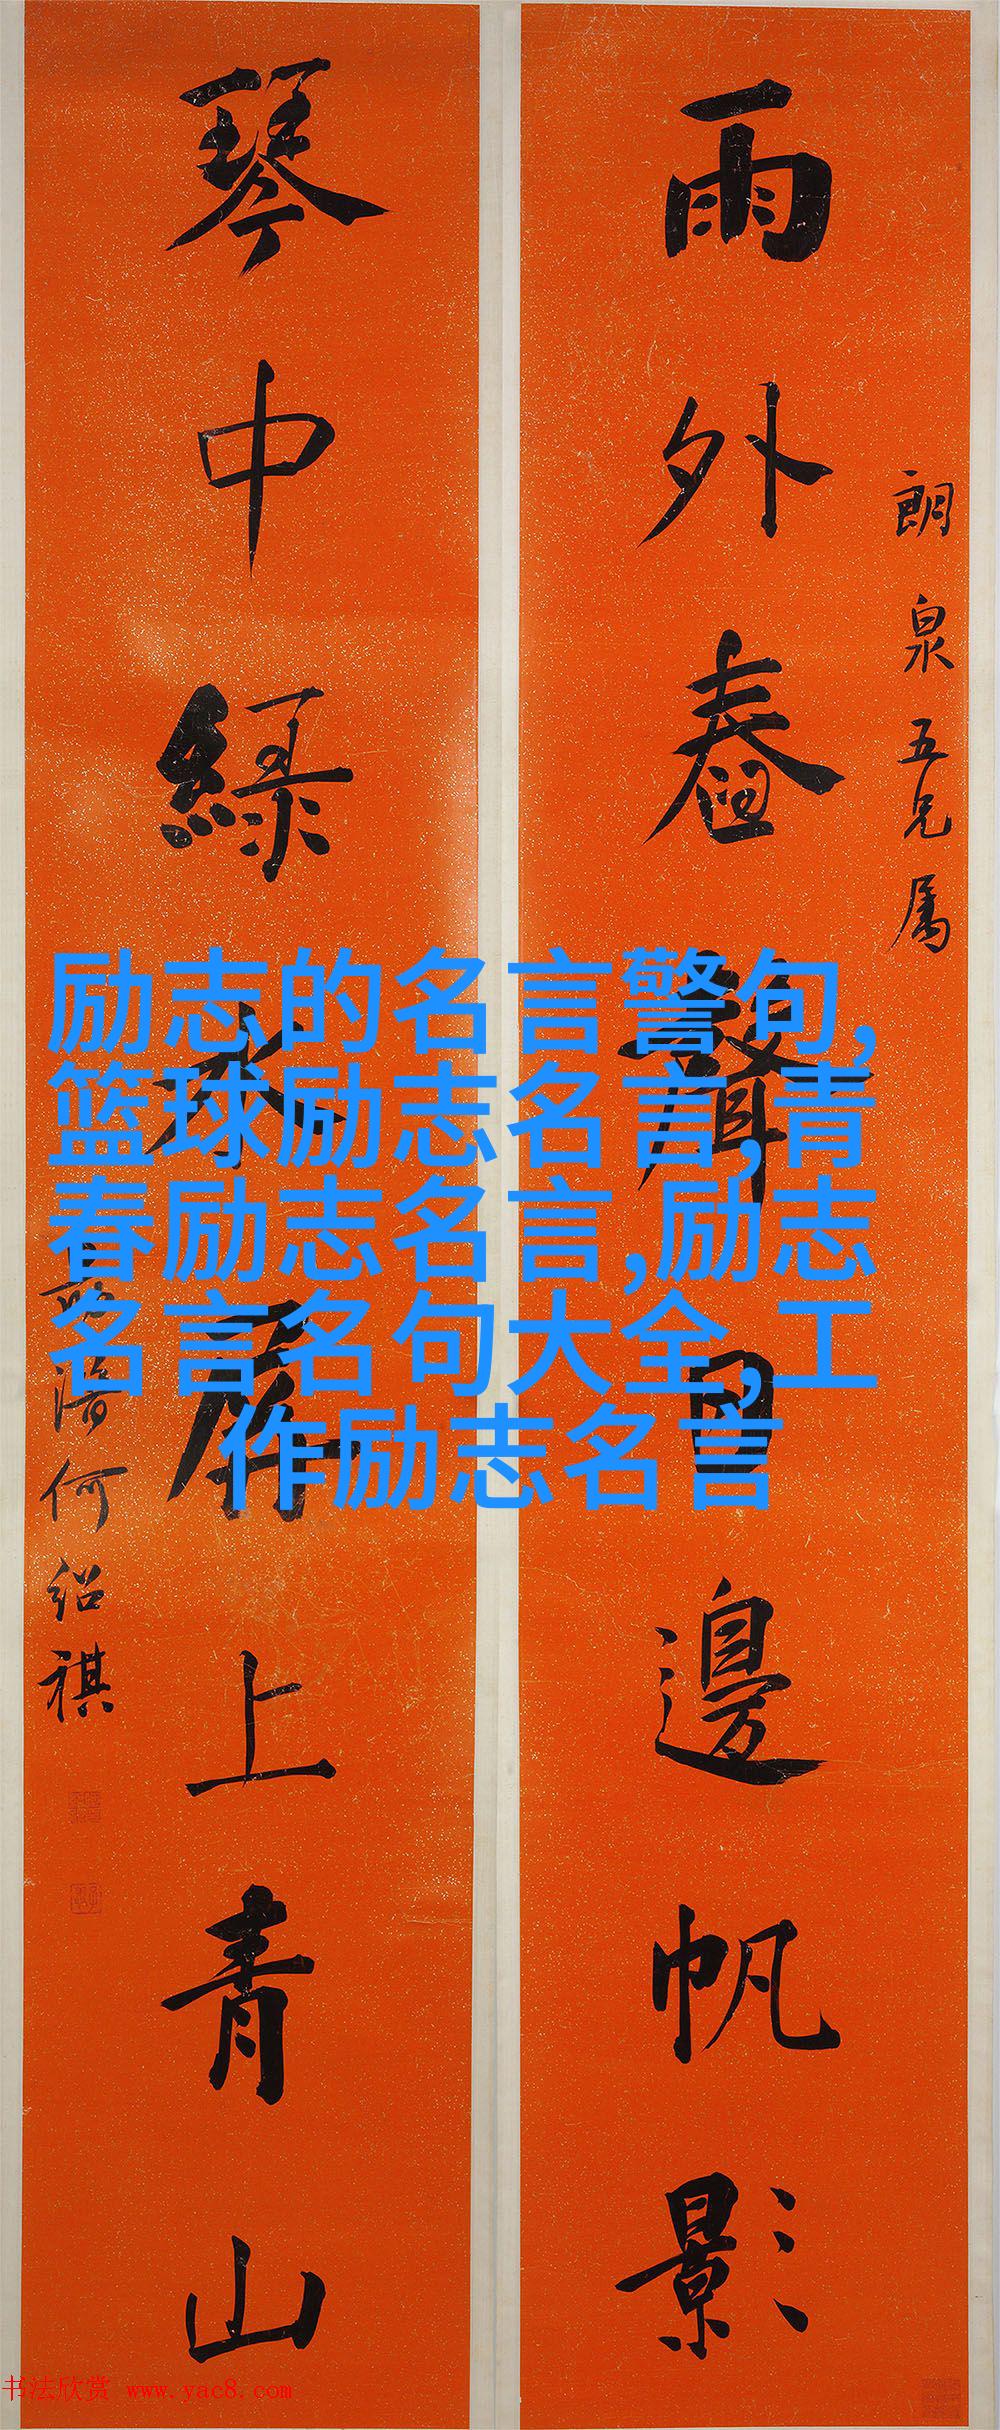 朗泉五兄属
雨外舂聲日邊帆影
琴中綠水屏上青山
何紹祺
励志的名言警句,
篮球励志名言,青
春励志名言,励志
名言名句大全,工
作励志名言
书法欣赏 www.yac8.com